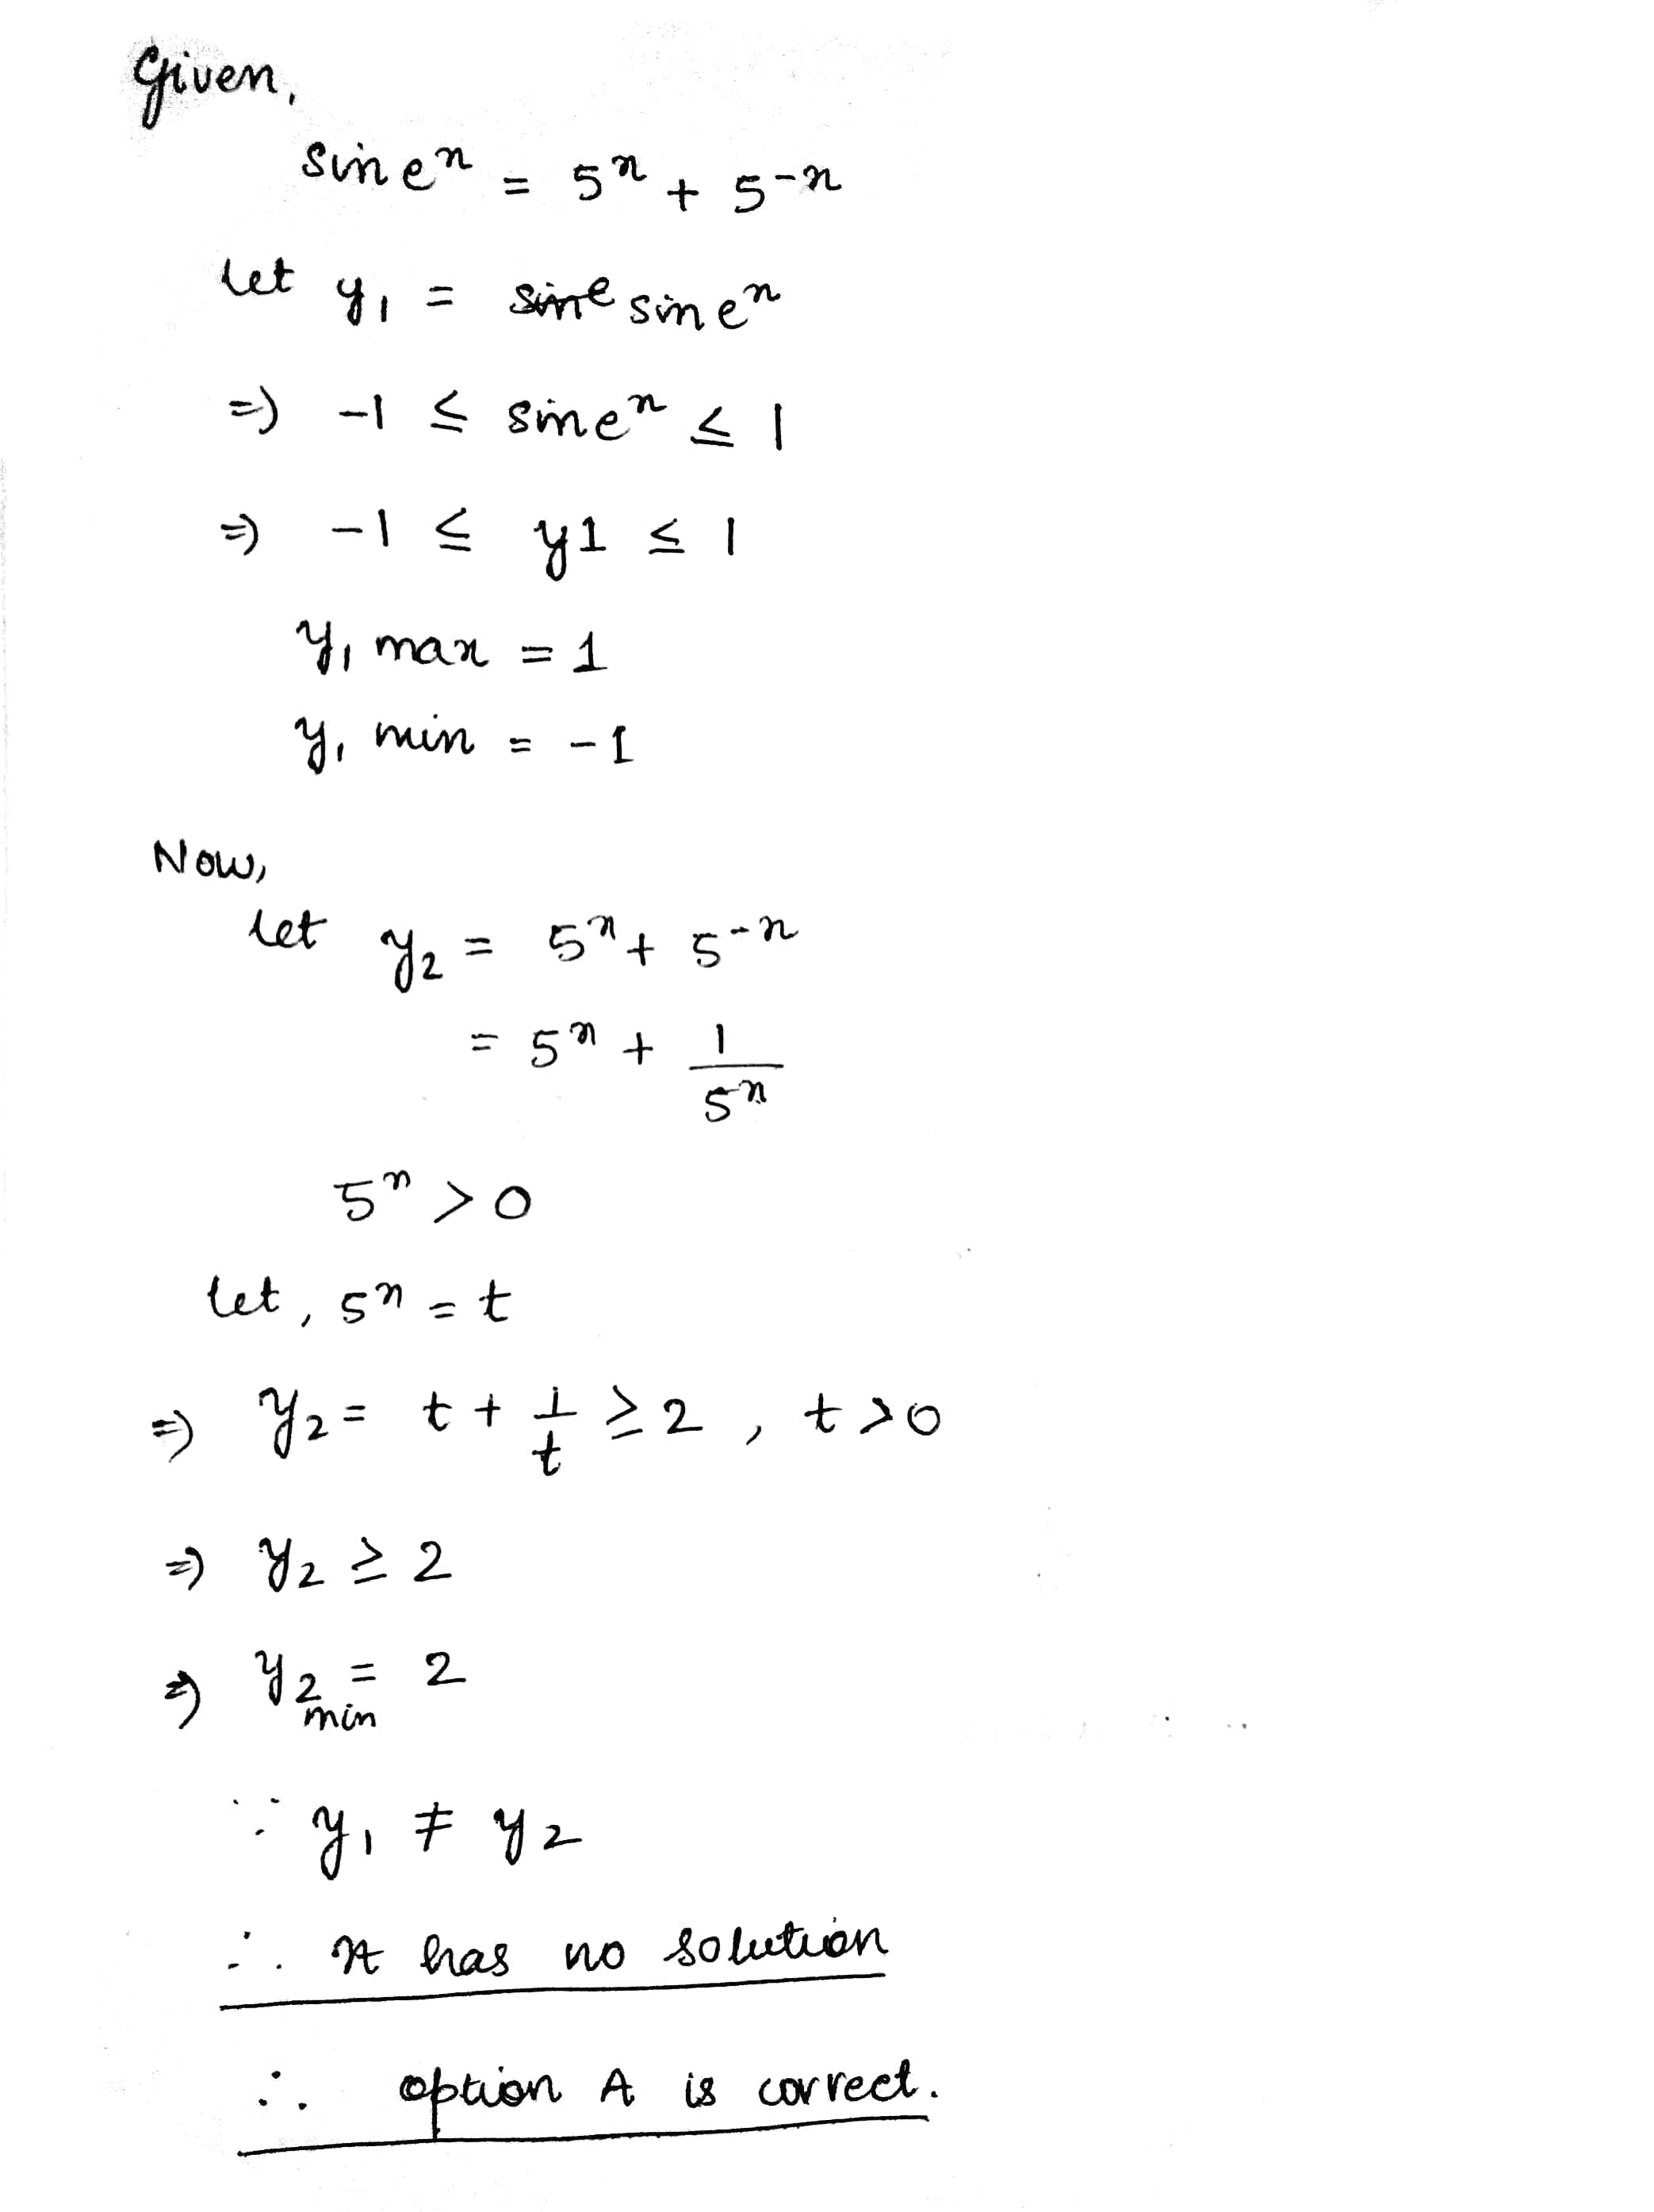 Given,
sin eˣ = 5ˣ + 5⁻ˣ
let y₁ = sin eˣ
⇒ -1 ≤ sin eˣ ≤ 1
⇒ -1 ≤ y1 ≤ 1
y₁ max = 1
y₁ min = -1
Now,
let y₂ = 5ˣ + 5⁻ˣ
= 5ˣ + 1/5ˣ
5ˣ > 0
let, 5ˣ = t
⇒ y₂ = t + 1/t ≥ 2, t > 0
⇒ y₂ ≥ 2
⇒ y₂ min = 2
∵ y₁ ≠ y₂
∴ It has no solution
∴ option A is correct.